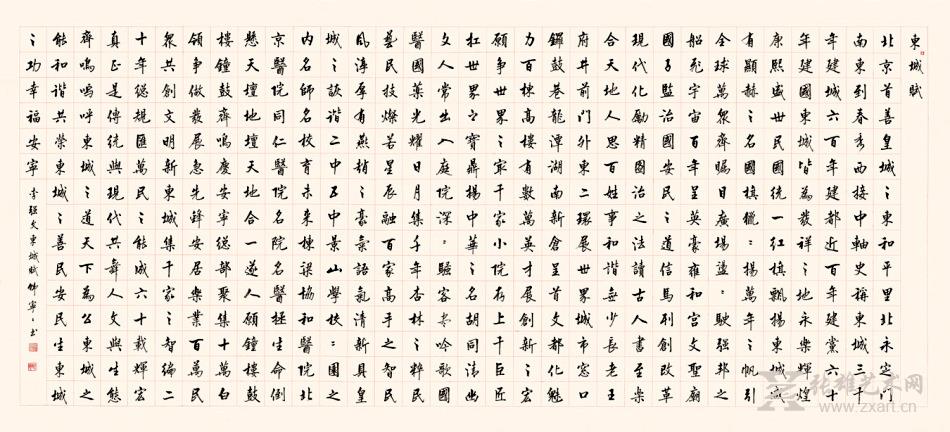 東城賦
北京首善皇城之東和平里北永定門
南東到春秀西接中軸史稱東城三千
年建城六百年建都近百年建黨六十
年建國東城皆為發祥之地永樂輝煌
康熙盛世民國統一紅旗飄揚東城威
有顯赫之名國旗獵獵揚萬年之帆引
全球萬眾齊矚目廣場溢溢駛強邦之
船飛宇宙百年呈英豪雍和宮文聖廟
國子監治國安民之道信馬列創改革
現代化勵精圖治之法讀古人書至樂
合天地人思百姓事和諧無少長老王
府井前門外東二環展世界城市窗口
鑼鼓巷龍潭湖南新倉呈首都文化魅
力百棟高樓有數萬英才展創新之宏
願爭世界之家千家小院存上千巨匠
扛世界之寶鼎揚中華之名胡同清幽
文人常出入庭院深深騷客吟歌國
醫國藥光耀日月集千年杏林之粹民
藝民技燦若星辰融百家高手之精民
風淳厚有燕趙之豪氣語氣清新具皇
城之詼諧二中五中景山學校團之
內名師名校育未來棟梁協和醫院北
京醫院同仁醫院名院名醫拯生命倒
懸天壇地壇天地合一遂人願鐘樓鼓
樓鐘鼓齊鳴慶安寧總部聚集十萬白
領爭做發展急先鋒安居樂業百萬民
眾共創文明新東城集千家之智編二
十年總規匯萬民之能成六十載輝宏
真正是傳統與現代共舞人文與生態
齊鳴嗚呼東城之道天下為公東城之
能和諧共榮東城之善民安民生東城
之功幸福安寧 李強文東城賦 書